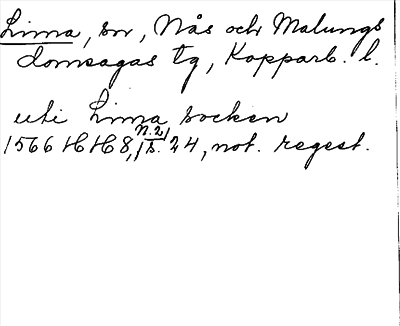 Lima, sn, Nås och Malungs
domsagas tg, Kopparb. l.
uti Lima socken
1566 HH 8, n. 2, s. 24, not. regest.